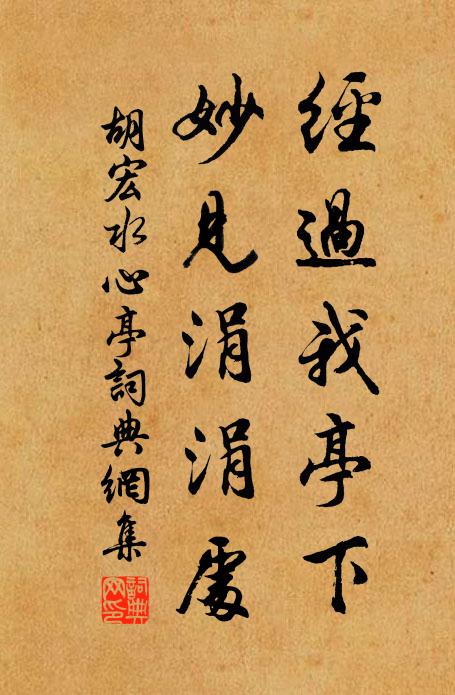 經過我亭下
妙見涓涓處
胡宏水心亭詞典網集
詞典网印